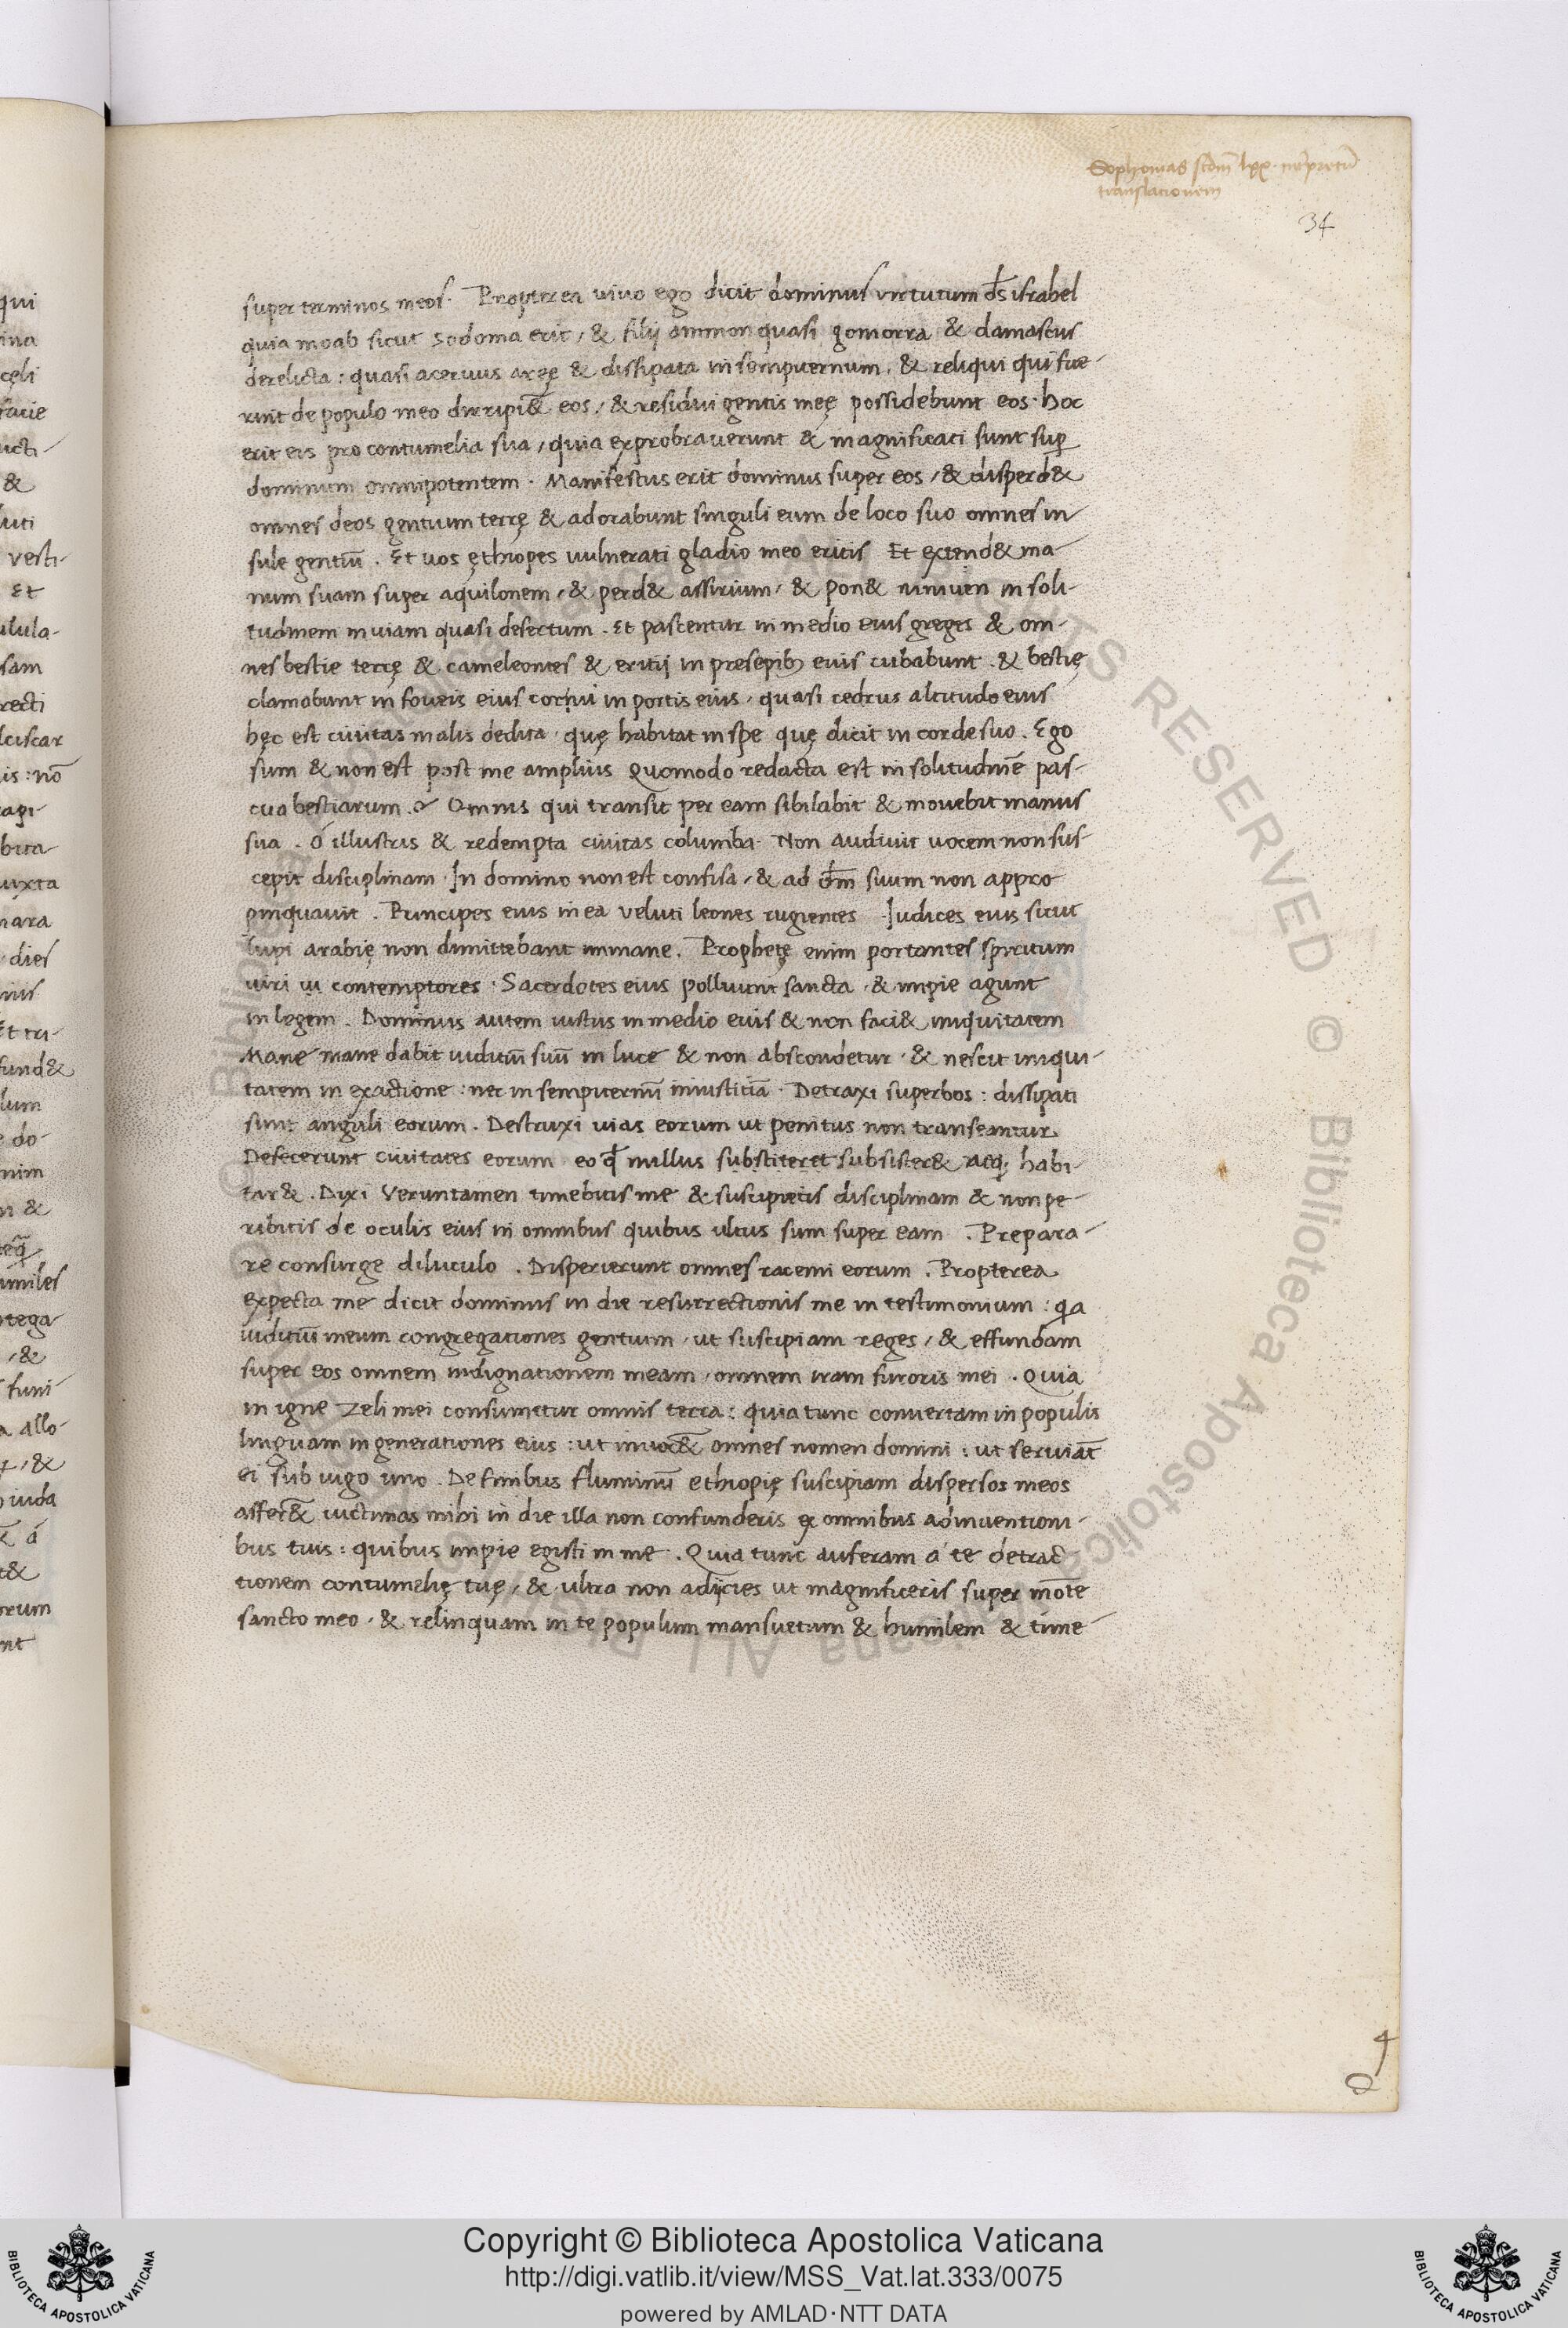 Sophonias scdm lxx. interpretu
translacionem
34
super terminos meos. Propterea vivo ego dicit dominus virtutum ds israhel
quia moab sicut sodoma erit, & filij ammon quasi gomorra & damascus
derelicta: quasi acervus aręę & dissipata in sempiternum. & reliqui qui fue-
rint de populo meo diripi&̄ eos, & residui gentis meę possidebunt eos. hoc
erit eis pro contumelia sua, quia exprobraverunt & magnificati sunt suꝑ
dominum omnipotentem. Manifestus erit dominus super eos, & disperd&
omnes deos gentium terrę & adorabunt singuli eum de loco suo omnes in
sule gentiū. Et vos ęthiopes vulnerati gladio meo eritis Et extend& ma-
num suam super aquilonem, & perd& assirium, & pon& niniven in soli-
tudinem inviam quasi desertum. Et pascentur in medio eius greges & om-
nes bestie terrę & cameleontes & eritij in presepibꝫ eius cubabunt. & bestię
clamabunt in foveis eius corvi in portis eius, quasi cedrus altitudo eius
hęc est civitas malis dedita. quę habitat in spe quę dicit in corde suo. Ego
sum & non est post me amplius Quomodo redacta est in solitudinē pas-
cua bestiarum. Omnis qui transit per eam sibilabit & movebit manus
sua. ó illustris & redempta civitas columba. Non audivit vocem non sus-
cepit disciplinam. In domino non est confisa, & ad dm̄ suum non appro
pinquavit. Principes eius in ea veluti leones rugientes Iudices eius sicut
lupi arabię non dimittebant in mane. Prophetę enim portantes spiritum
viri contemptores. Sacerdotes eius polluunt sancta. & impie agunt
in legem. Dominus autem iustus in medio eius & non faci& iniquitatem
Mane mane dabit iuditiū suū in luce & non abscondetur. & nescit iniqui-
tatem in exactione: nec in sempiternū iniustitiā. Detraxi superbos: dissipati
sunt anguli eorum. Destruxi vias eorum ut penitus non transeantur.
Defecerunt civitates eorum eo ꝙ nullus substiteret subsister& neqꝫ habi-
tar&. Dixi Veruntamen timebitis me & suscipietis disciplinam & non pe-
ribitis de oculis eius in omnibus quibus ultus sum super eam. Prepara-
re consurge diluculo. Disperierunt omnes racemi eorum. Propterea
expecta me dicit dominus in die resurrectionis me in testimonium: qa
iuditiū meum congregationes gentium, ut suscipiam reges, & effundam
super eos omnem indignationem meam, omnem iram furoris mei. Quia
in igne zeli mei consumetur omnis terra: quia tunc convertam in populis
linguam in generationes eius: ut invoc&̄ omnes nomen domini: ut serviāt
ei sub iugo uno. De finibus fluminū ethiopię suscipiam dispersos meos
affer&̄ victimas mihi in die illa non confunderis ex omnibus adinventioni-
bus tuis: quibus impie egisti in me. Quia tunc auferam á te detrac-
tionem contumelię tuę, & ultra non adijcies ut magnificeris super mōte
sancto meo, & relinquam in te populum mansuetum & humilem & time-
Copyright © Biblioteca Apostolica Vaticana
http://digi.vatlib.it/view/MSS_Vat.lat.333/0075
powered by AMLAD·NTT DATA